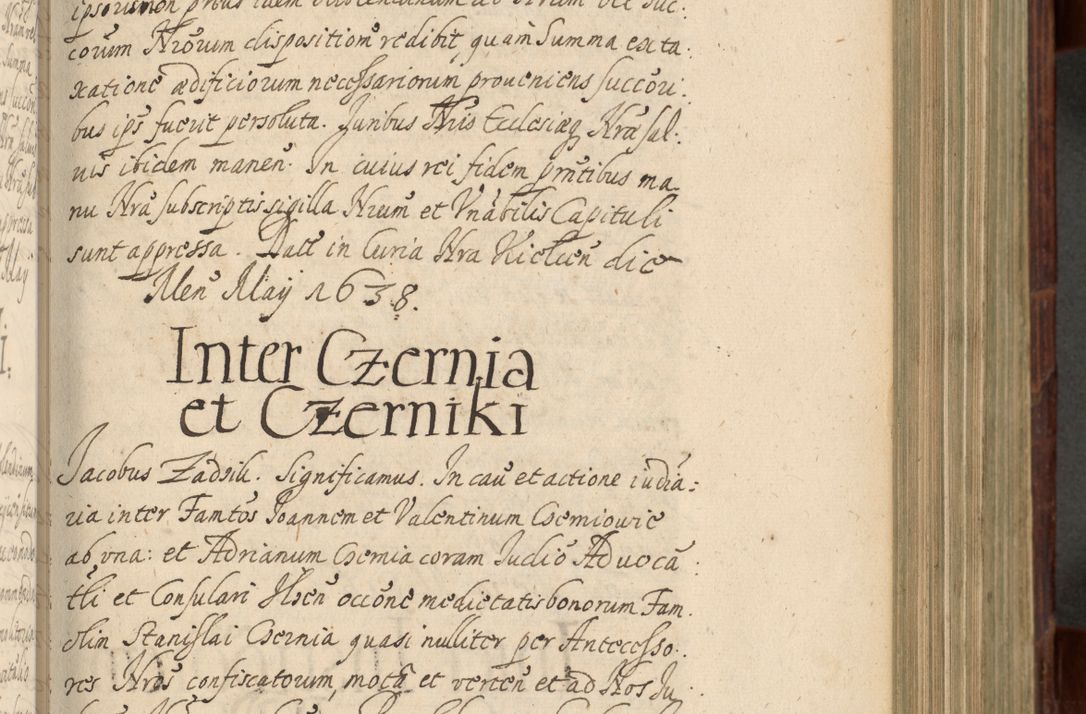 corum Nrorum disposition̄ redibit, quàm Summa ex ta
xationē ædificiorum necessariorum proueniens succōri
bus ip̄s fuerit persoluta. Juribus Nr̄is Ecclesiæq Nræ sal:
uis ibidem manen̄. In cuius rei fidem pr̄ntibus ma
nu Nrā subscriptis sigilla Nrum et Vn̄abilis Capituli
sunt appressa. Datt in Curia Nra Kielcen̄ die
Men̄ Maij 1638.
Inter Czernia
et Czerniki
Jacobus Zadzik. Significamus. In cau et actione iudia:
ria inter Famtos Joannem et Valentinum
ab vna: et Adrianum coram Iudio Aduocā
tli et Consulari occōne medietatis bonorum Fam
olim Stanislai quasi nulliter per Antecesso
res Nros confiscatorum, motā et verten̄ et ad Nos Iu